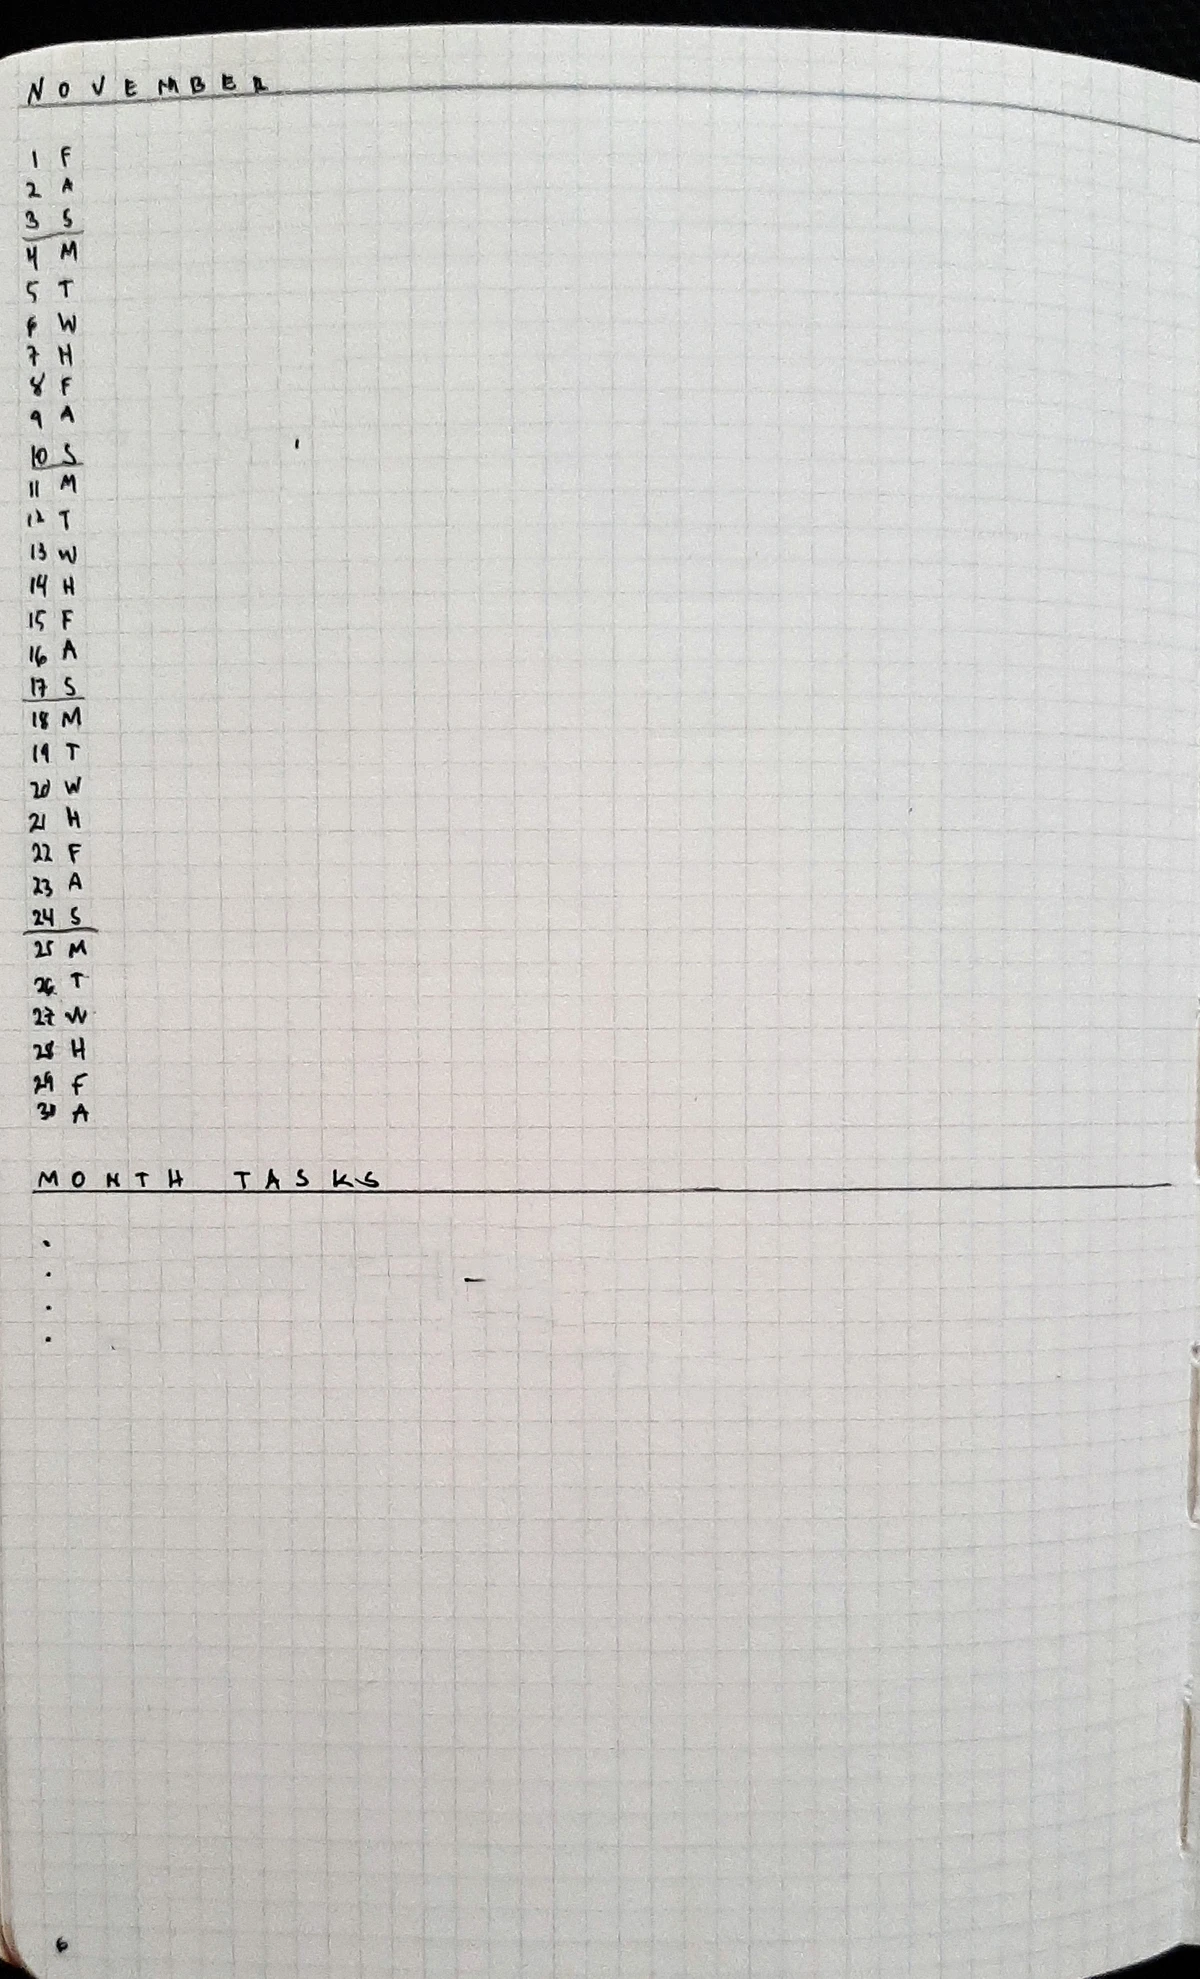 NOVEMBER
1 F
2 A
3 S
4 M
5 T
6 W
7 H
8 F
9 A
10 S
11 M
12 T
13 W
14 H
15 F
16 A
17 S
18 M
19 T
20 W
21 H
22 F
23 A
24 S
25 M
26 T
27 W
28 H
29 F
30 A
MONTH TASKS
·
·
·
·
6